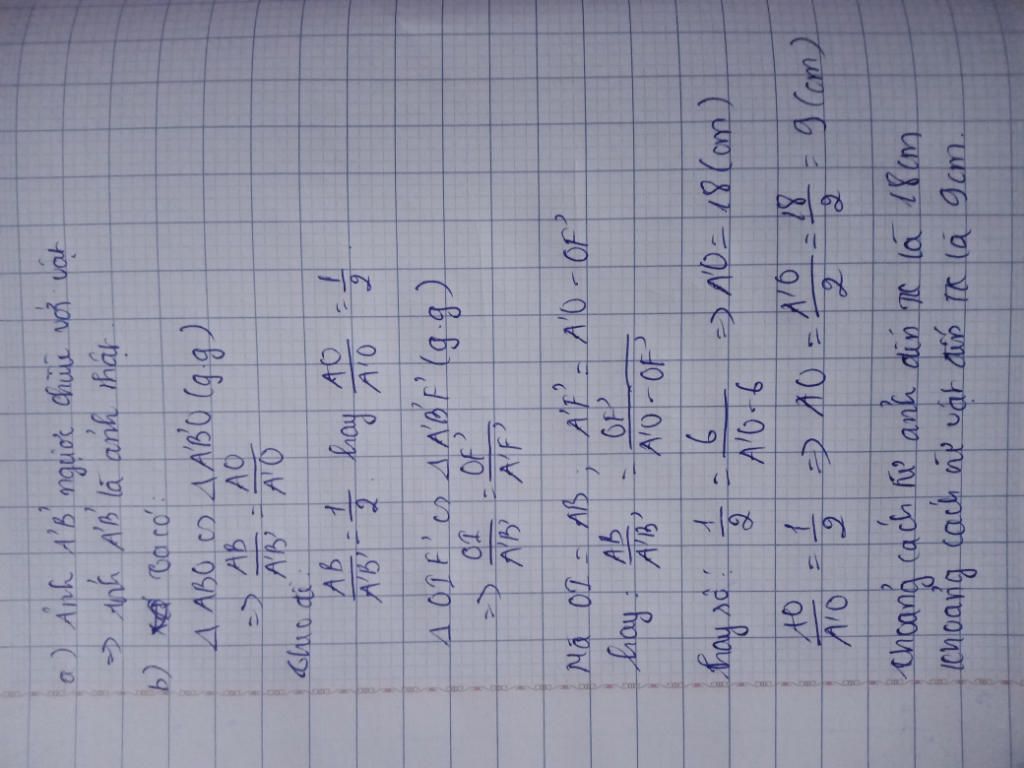 a) Ảnh A'B' ngược chiều với vật
=> ảnh A'B' là ảnh thật.
b) Ta có:
Δ ABO ∽ Δ A'B'O (g.g)
=> AB/A'B' = AO/A'O
Theo đề:
AB/A'B' = 1/2 hay AO/A'O = 1/2
Δ OIF' ∽ Δ A'B'F' (g.g)
=> OI/A'B' = OF'/A'F'
Mà OI = AB ; A'F' = A'O - OF'
hay: AB/A'B' = OF'/A'O - OF'
Thay số: 1/2 = 6/A'O - 6 => A'O = 18 (cm)
AO/A'O = 1/2 => AO = A'O/2 = 18/2 = 9 (cm)
Khoảng cách từ ảnh đến TK là 18cm
Khoảng cách từ vật đến TK là 9cm.